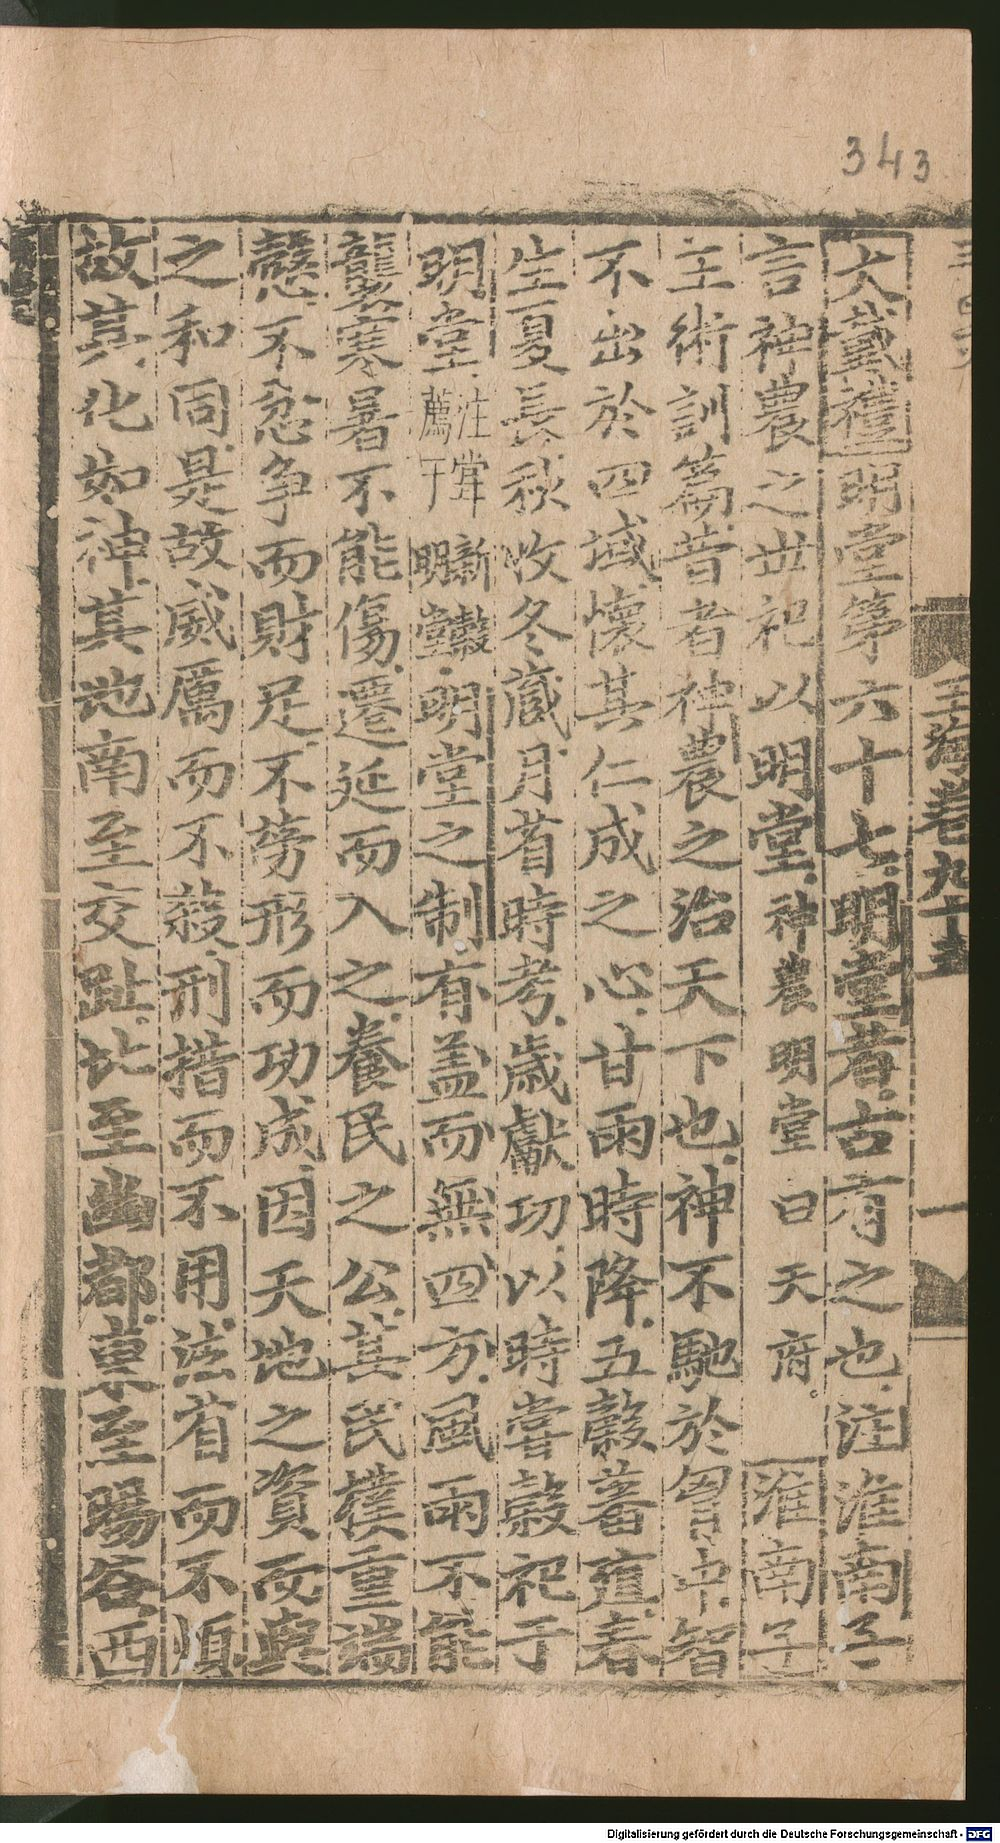 343
玉海卷九十五
一
大戴禮明堂第六十七明堂者古有之也注淮南子
言神農之世祀以明堂神農明堂曰天府 淮南子
主術訓篇昔者神農之治天下也神不馳於胷中智
不出於四域懷其仁成之心甘雨時降五穀蕃殖春
生夏長秋收冬藏月省時考歲獻功以時嘗穀祀于
明堂注嘗新穀薦于明堂明堂之制有盖而無四方風雨不能
襲寒暑不能傷遷延而入之養民之公其民樸重端
慤不忿争而財足不勞形而功成因天地之資而與
之和同是故威厲而不殺刑措而不用法省而不煩
故其化如神其地南至交趾北至幽都東至暘谷西
Digitalisierung gefördert durch die Deutsche Forschungsgemeinschaft - DFG